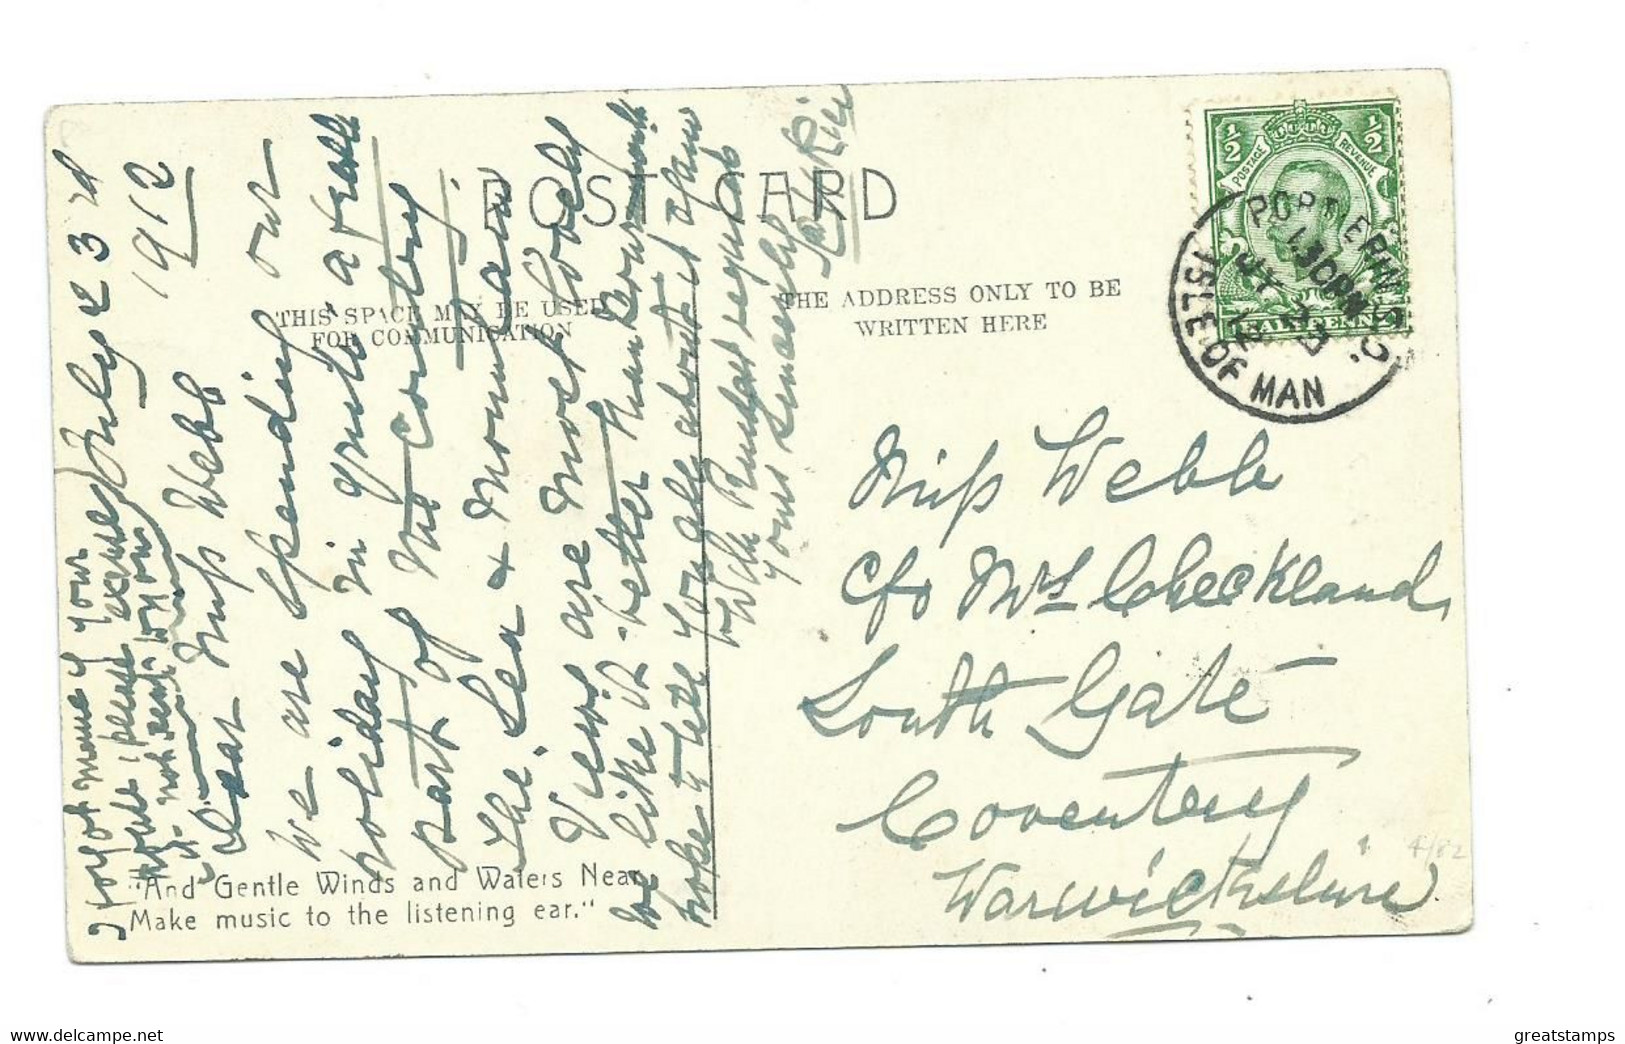 POST CARD
THIS SPACE MAY BE USED
FOR COMMUNICATION
THE ADDRESS ONLY TO BE
WRITTEN HERE
½ ½
POSTAGE REVENUE
HALFPENNY
PORT ERIN S.O.
1.30PM
JY 23
12
ISLE OF MAN
July 23rd
1912
Dear Miss Webb
We are spending our
holiday in quite a fresh
part of the country
The Sea & Mountain
Views are most lovely
we like it better than
hope to tell you all about it
with kindest regards
yours sincerely
I forgot name of your
house, please excuse
Miss Webb
C/o Mrs Checkland,
South Gate
Coventry
Warwickshire
"And Gentle Winds and Waters Near
Make music to the listening ear."
4/82
www.delcampe.net
greatstamps